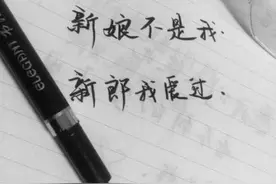 新娘不是我.
新郎我爱过.
ELEGANT